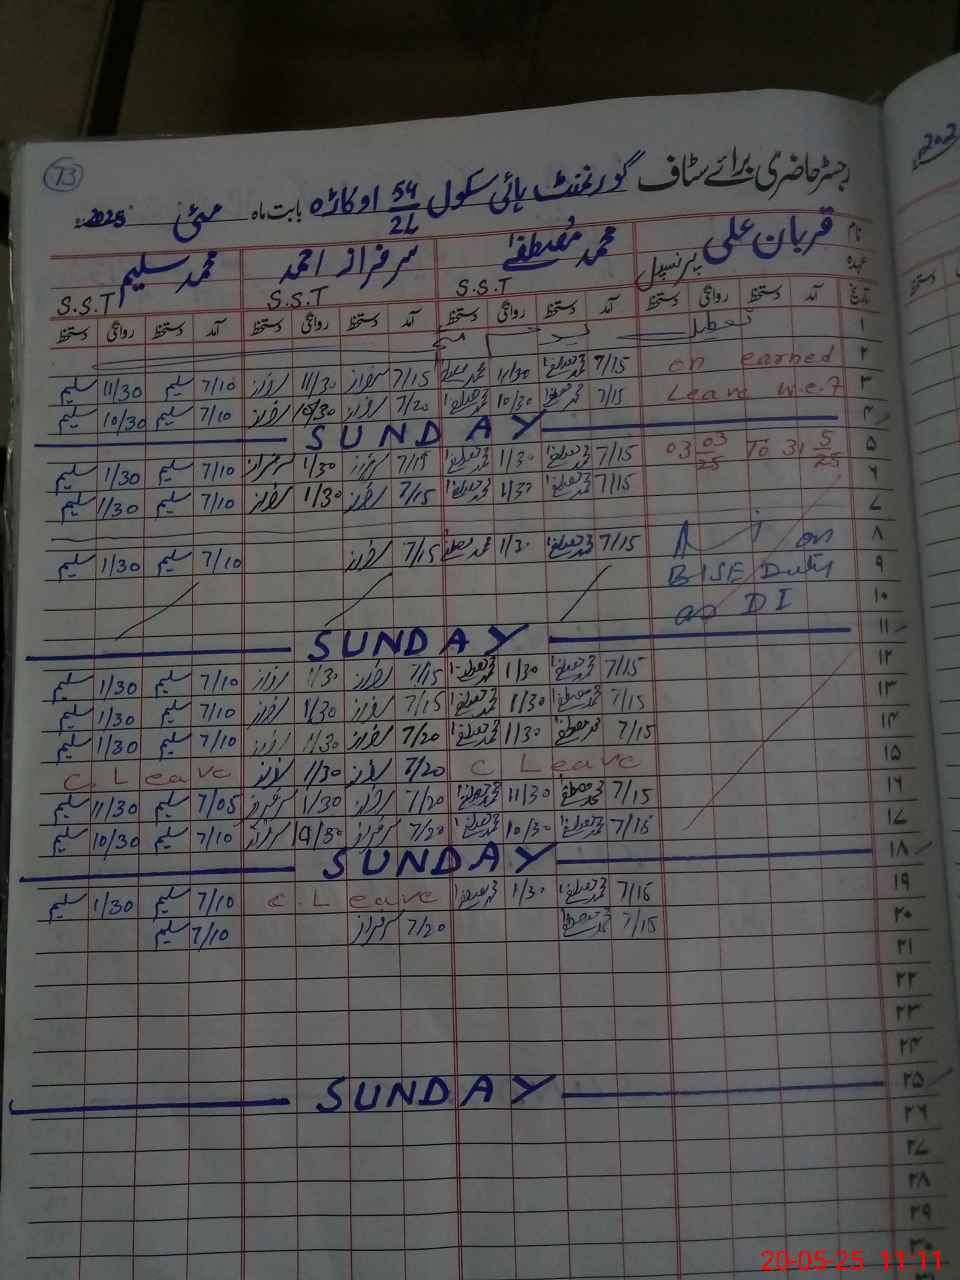 73
رجسٹر حاضری برائے سٹاف گورنمنٹ ہائی سکول 54/2L اوکاڑہ بابت ماہ مئی 2025ء
نام قربان علی محمد مصطفیٰ سرفراز احمد محمد سلیم
عہدہ پرنسپل S.S.T S.S.T S.S.T
تاریخ آمد دستخط روانگی دستخط آمد دستخط روانگی دستخط آمد دستخط روانگی دستخط آمد دستخط روانگی دستخط
۱ تعطیل
۲ on earned 7/15 محمد مصطفیٰ 11/30 محمد مصطفیٰ 7/15 سرفراز 11/30 سرفراز 7/10 سلیم 11/30 سلیم
۳ Leave w.e.f 7/15 محمد مصطفیٰ 10/30 محمد مصطفیٰ 7/20 سرفراز 10/30 سرفراز 7/10 سلیم 10/30 سلیم
۴ SUNDAY
۵ 03 03/25 To 31 5/25 7/15 محمد مصطفیٰ 1/30 محمد مصطفیٰ 7/15 سرفراز 1/30 سرفراز 7/10 سلیم 1/30 سلیم
۶ 7/15 محمد مصطفیٰ 1/30 محمد مصطفیٰ 7/15 سرفراز 1/30 سرفراز 7/10 سلیم 1/30 سلیم
۷
۸ on 7/15 محمد مصطفیٰ 1/30 محمد مصطفیٰ 7/15 سرفراز 7/10 سلیم 1/30 سلیم
۹ BISE Duty
۱۰ as DI
۱۱ SUNDAY
۱۲ 7/15 محمد مصطفیٰ 1/30 محمد مصطفیٰ 7/15 سرفراز 1/30 سرفراز 7/10 سلیم 1/30 سلیم
۱۳ 7/15 محمد مصطفیٰ 1/30 محمد مصطفیٰ 7/15 سرفراز 1/30 سرفراز 7/10 سلیم 1/30 سلیم
۱۴ 7/15 محمد مصطفیٰ 1/30 محمد مصطفیٰ 7/20 سرفراز 1/30 سرفراز 7/10 سلیم 1/30 سلیم
۱۵ C Leave 7/20 سرفراز 1/30 سرفراز C. Leave
۱۶ 7/15 محمد مصطفیٰ 11/30 محمد مصطفیٰ 7/20 سرفراز 1/30 سرفراز 7/05 سلیم 11/30 سلیم
۱۷ 7/15 محمد مصطفیٰ 10/30 محمد مصطفیٰ 7/20 سرفراز 10/30 سرفراز 7/10 سلیم 10/30 سلیم
۱۸ SUNDAY
۱۹ 7/15 محمد مصطفیٰ 1/30 محمد مصطفیٰ C. Leave 7/10 سلیم 1/30 سلیم
۲۰ 7/15 محمد مصطفیٰ 7/20 سرفراز 7/10 سلیم
۲۱
۲۲
۲۳
۲۴
۲۵ SUNDAY
۲۶
۲۷
۲۸
۲۹
۳۰
20-05-25 11:11